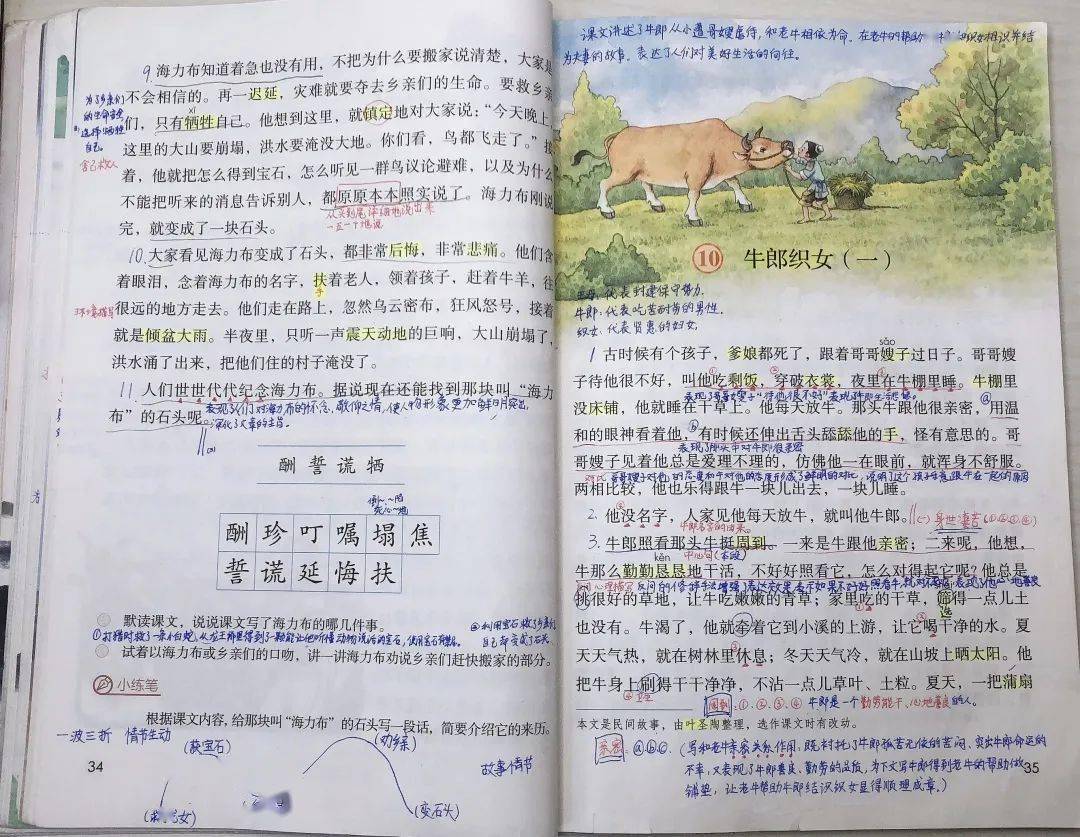 9.海力布知道着急也没有用，不把为什么要搬家说清楚，大家是
不会相信的。再一迟延，灾难就要夺去乡亲们的生命。要救乡亲
们，只有牺牲自己。他想到这里，就镇定地对大家说：“今天晚上，
这里的大山要崩塌，洪水要淹没大地。你们看，鸟都飞走了。”接
着，他就把怎么得到宝石，怎么听见一群鸟议论避难，以及为什么
不能把听来的消息告诉别人，都原原本本照实说了。海力布刚说
完，就变成了一块石头。
为了乡亲们
的生命安全
选择牺牲
自己
舍己救人
xī
从头到尾详细地说出来
10.大家看见海力布变成了石头，都非常后悔，非常悲痛。他们含
着眼泪，念着海力布的名字，扶着老人，领着孩子，赶着牛羊，往
很远的地方走去。他们走在路上，忽然乌云密布，狂风怒号，接着
就是倾盆大雨。半夜里，只听一声震天动地的巨响，大山崩塌了，
洪水涌了出来，把他们住的村子淹没了。
环境描写
11.人们世世代代纪念海力布。据说现在还能找到那块叫“海力
布”的石头呢。
表现了人们对海力布的怀念、敬仰之情，使人物形象更加鲜明突出，
深化了文章的主旨。
酬 誓 谎 牺
酬 珍 叮 嘱 塌 焦
誓 谎 延 悔 扶
默读课文，说说课文写了海力布的哪几件事。
试着以海力布或乡亲们的口吻，讲一讲海力布劝说乡亲们赶快搬家的部分。
小练笔
根据课文内容，给那块叫“海力布”的石头写一段话，简要介绍它的来历。
一波三折 情节生动
(获宝石)
(劝乡亲)
故事情节
(变石头)
34
课文讲述了牛郎从小遭哥嫂虐待，和老牛相依为命，在老牛的帮助
织女相识并结
为夫妻的故事，表达了人们对美好生活的向往。
10 牛郎织女（一）
王母：代表封建保守势力.
牛郎：代表吃苦耐劳的男性.
织女：代表贤惠的妇女.
sǎo
1 古时候有个孩子，爹娘都死了，跟着哥哥嫂子过日子。哥哥嫂
子待他很不好，叫他吃剩饭，穿破衣裳，夜里在牛棚里睡。牛棚里
没床铺，他就睡在干草上。他每天放牛。那头牛跟他很亲密，用温
和的眼神看着他，有时候还伸出舌头舔舔他的手，怪有意思的。哥
哥嫂子见着他总是爱理不理的，仿佛他一在眼前，就浑身不舒服。
两相比较，他也乐得跟牛一块儿出去，一块儿睡。
2. 他没名字，人家见他每天放牛，就叫他牛郎。
牛郎名字的由来。
(一)身世凄苦(①②③④)
3. 牛郎照看那头牛挺周到。一来是牛跟他亲密；二来呢，他想，
kěn
中心句
牛那么勤勤恳恳地干活，不好好照看它，怎么对得起它呢？他总是
挑很好的草地，让牛吃嫩嫩的青草；家里吃的干草，筛得一点儿土
也没有。牛渴了，他就牵着它到小溪的上游，让它喝干净的水。夏
天天气热，就在树林里休息；冬天天气冷，就在山坡上晒太阳。他
把牛身上刷得干干净净，不沾一点儿草叶、土粒。夏天，一把蒲扇
周到：①、②、③、④ 牛郎是一个勤劳能干、心地善良的人。
本文是民间故事，由叶圣陶整理，选作课文时有改动。
亲密：ⓐⓑⓒ.(写和老牛亲密关系作用：既衬托了牛郎孤苦无依的苦闷、突出牛郎命运的
不幸，又表现了牛郎善良、勤劳的品质，为下文写牛郎得到老牛的帮助做
铺垫，让老牛帮助牛郎结识织女显得顺理成章。)
35